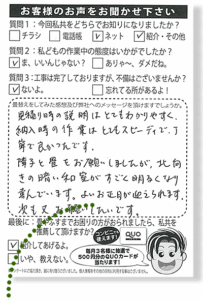 お客様のお声をお聞かせ下さい
質問1:今回私共をどちらでお知りになりましたか?
チラシ 電話帳 ネット 紹介・その他
質問2:私どもの作業中の態度はいかがでしたか?
ま、いいんじゃない? ありゃ~、ダメだね。
質問3:工事は完了しておりますが、不備はございませんか?
ないよ。 忘れてる所があるよ!
見積り時の説明はとてもわかりやすく、
納入時の作業はとてもスピーディで、丁
寧で良かったです。
障子と畳をお願いしましたが、北向
きの暗い和室がすごく明るくなり
喜んでいます。よいお正月が迎えられます。
次も又お願いしたいです。
最後に:
紹介してあげるよ。
いや、教えない。
コンビニで
使えます!
QUO
毎月3名様に抽選で
500円分のQUOカードが
当たります!